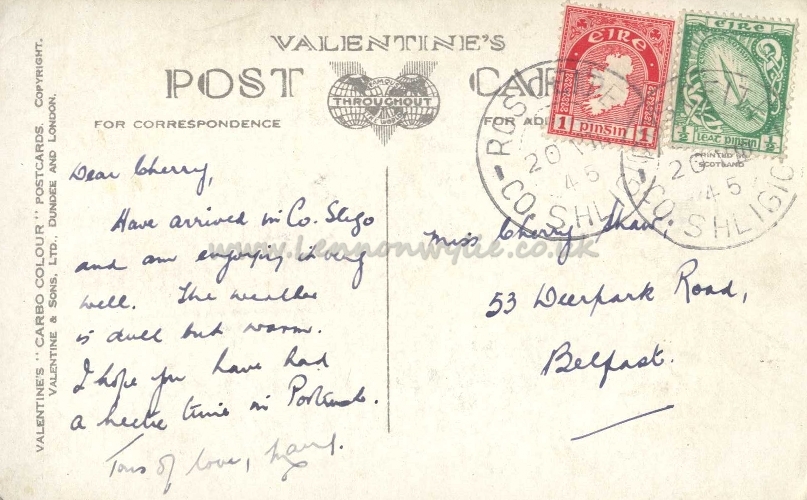 VALENTINE'S
POST CARD
FAMOUS THROUGHOUT THE WORLD
FOR CORRESPONDENCE
FOR AD
VALENTINE'S "CARBO COLOUR" POSTCARDS. COPYRIGHT.
VALENTINE & SONS, LTD., DUNDEE AND LONDON.
PRINTED IN
SCOTLAND
ÉIRE
1 PINSIN 1
½ LEAT PINSIN ½
ROS
20
45
CO. SHLIGIG
20
45
CO. SHLIGIG
Dear Cherry,
Have arrived in Co. Sligo
and am enjoying it very
well. The weather
is dull but warm.
I hope you have had
a hectic time in
Tons of love,
Miss Cherry Shaw,
53 Deerpark Road,
Belfast.
www.lennonwylie.co.uk